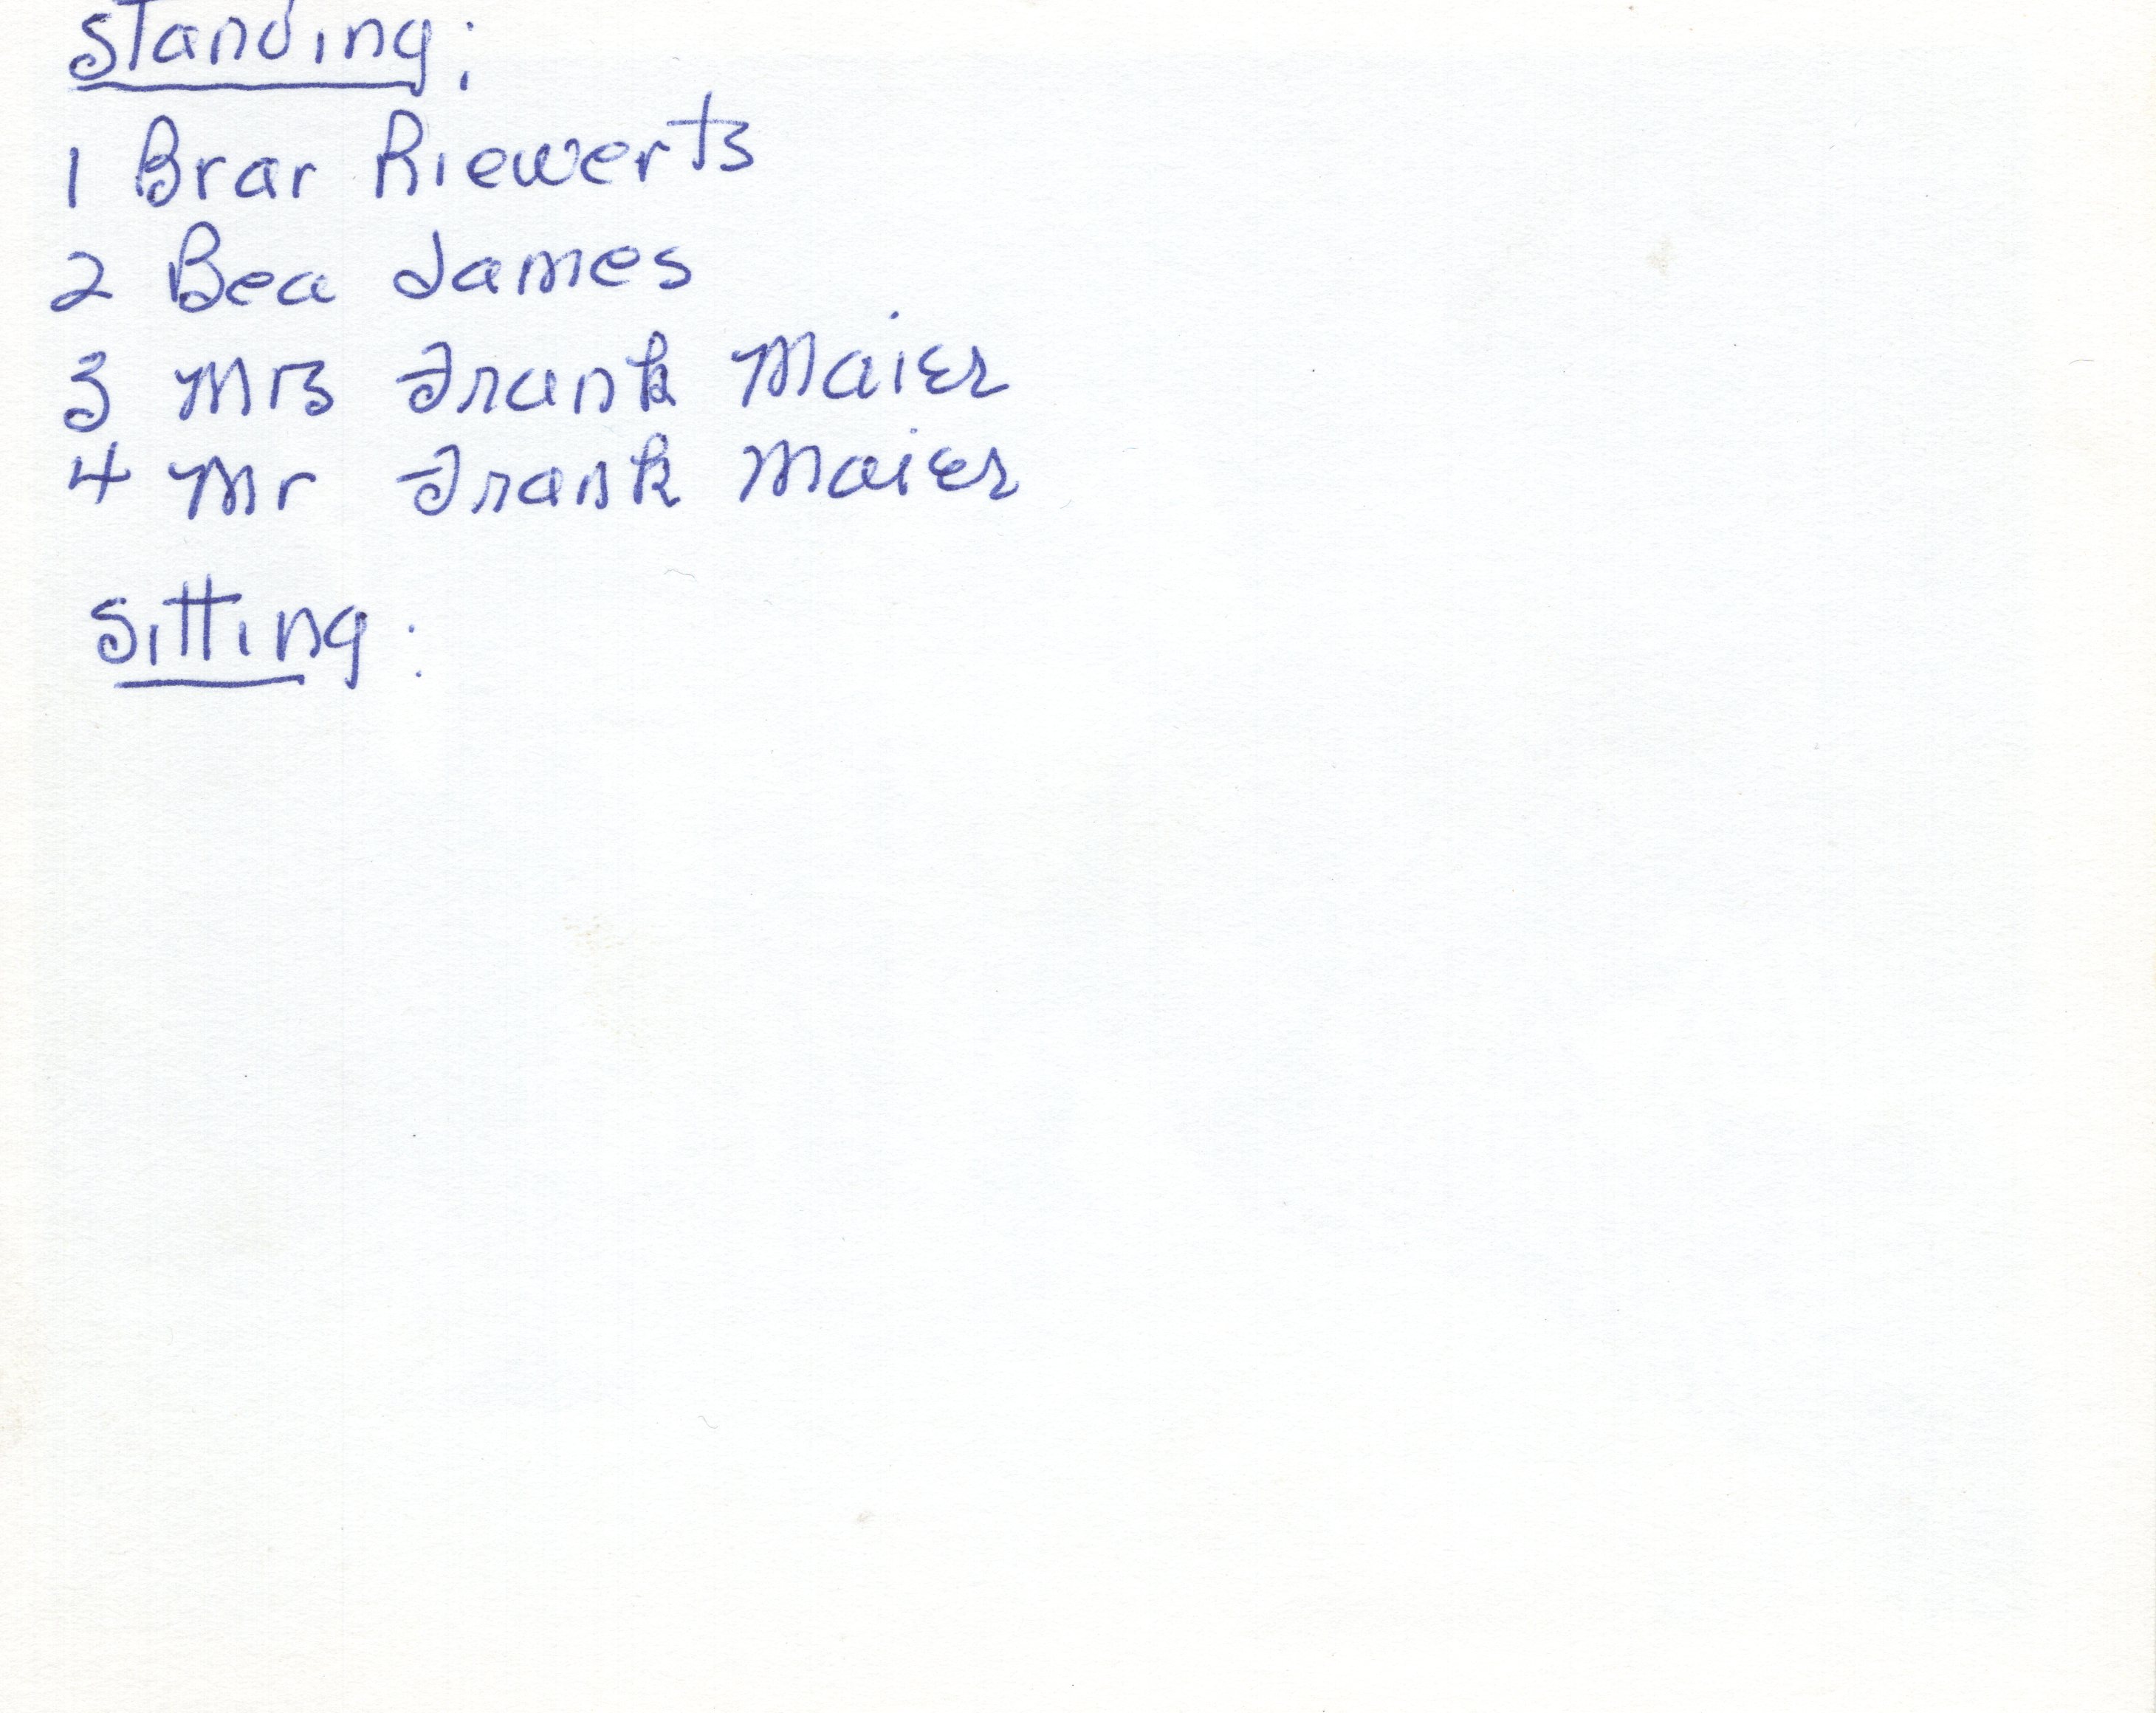 Standing:
1 Brar Riewerts
2 Bea James
3 Mrs Frank Maier
4 Mr Frank Maier
Sitting: